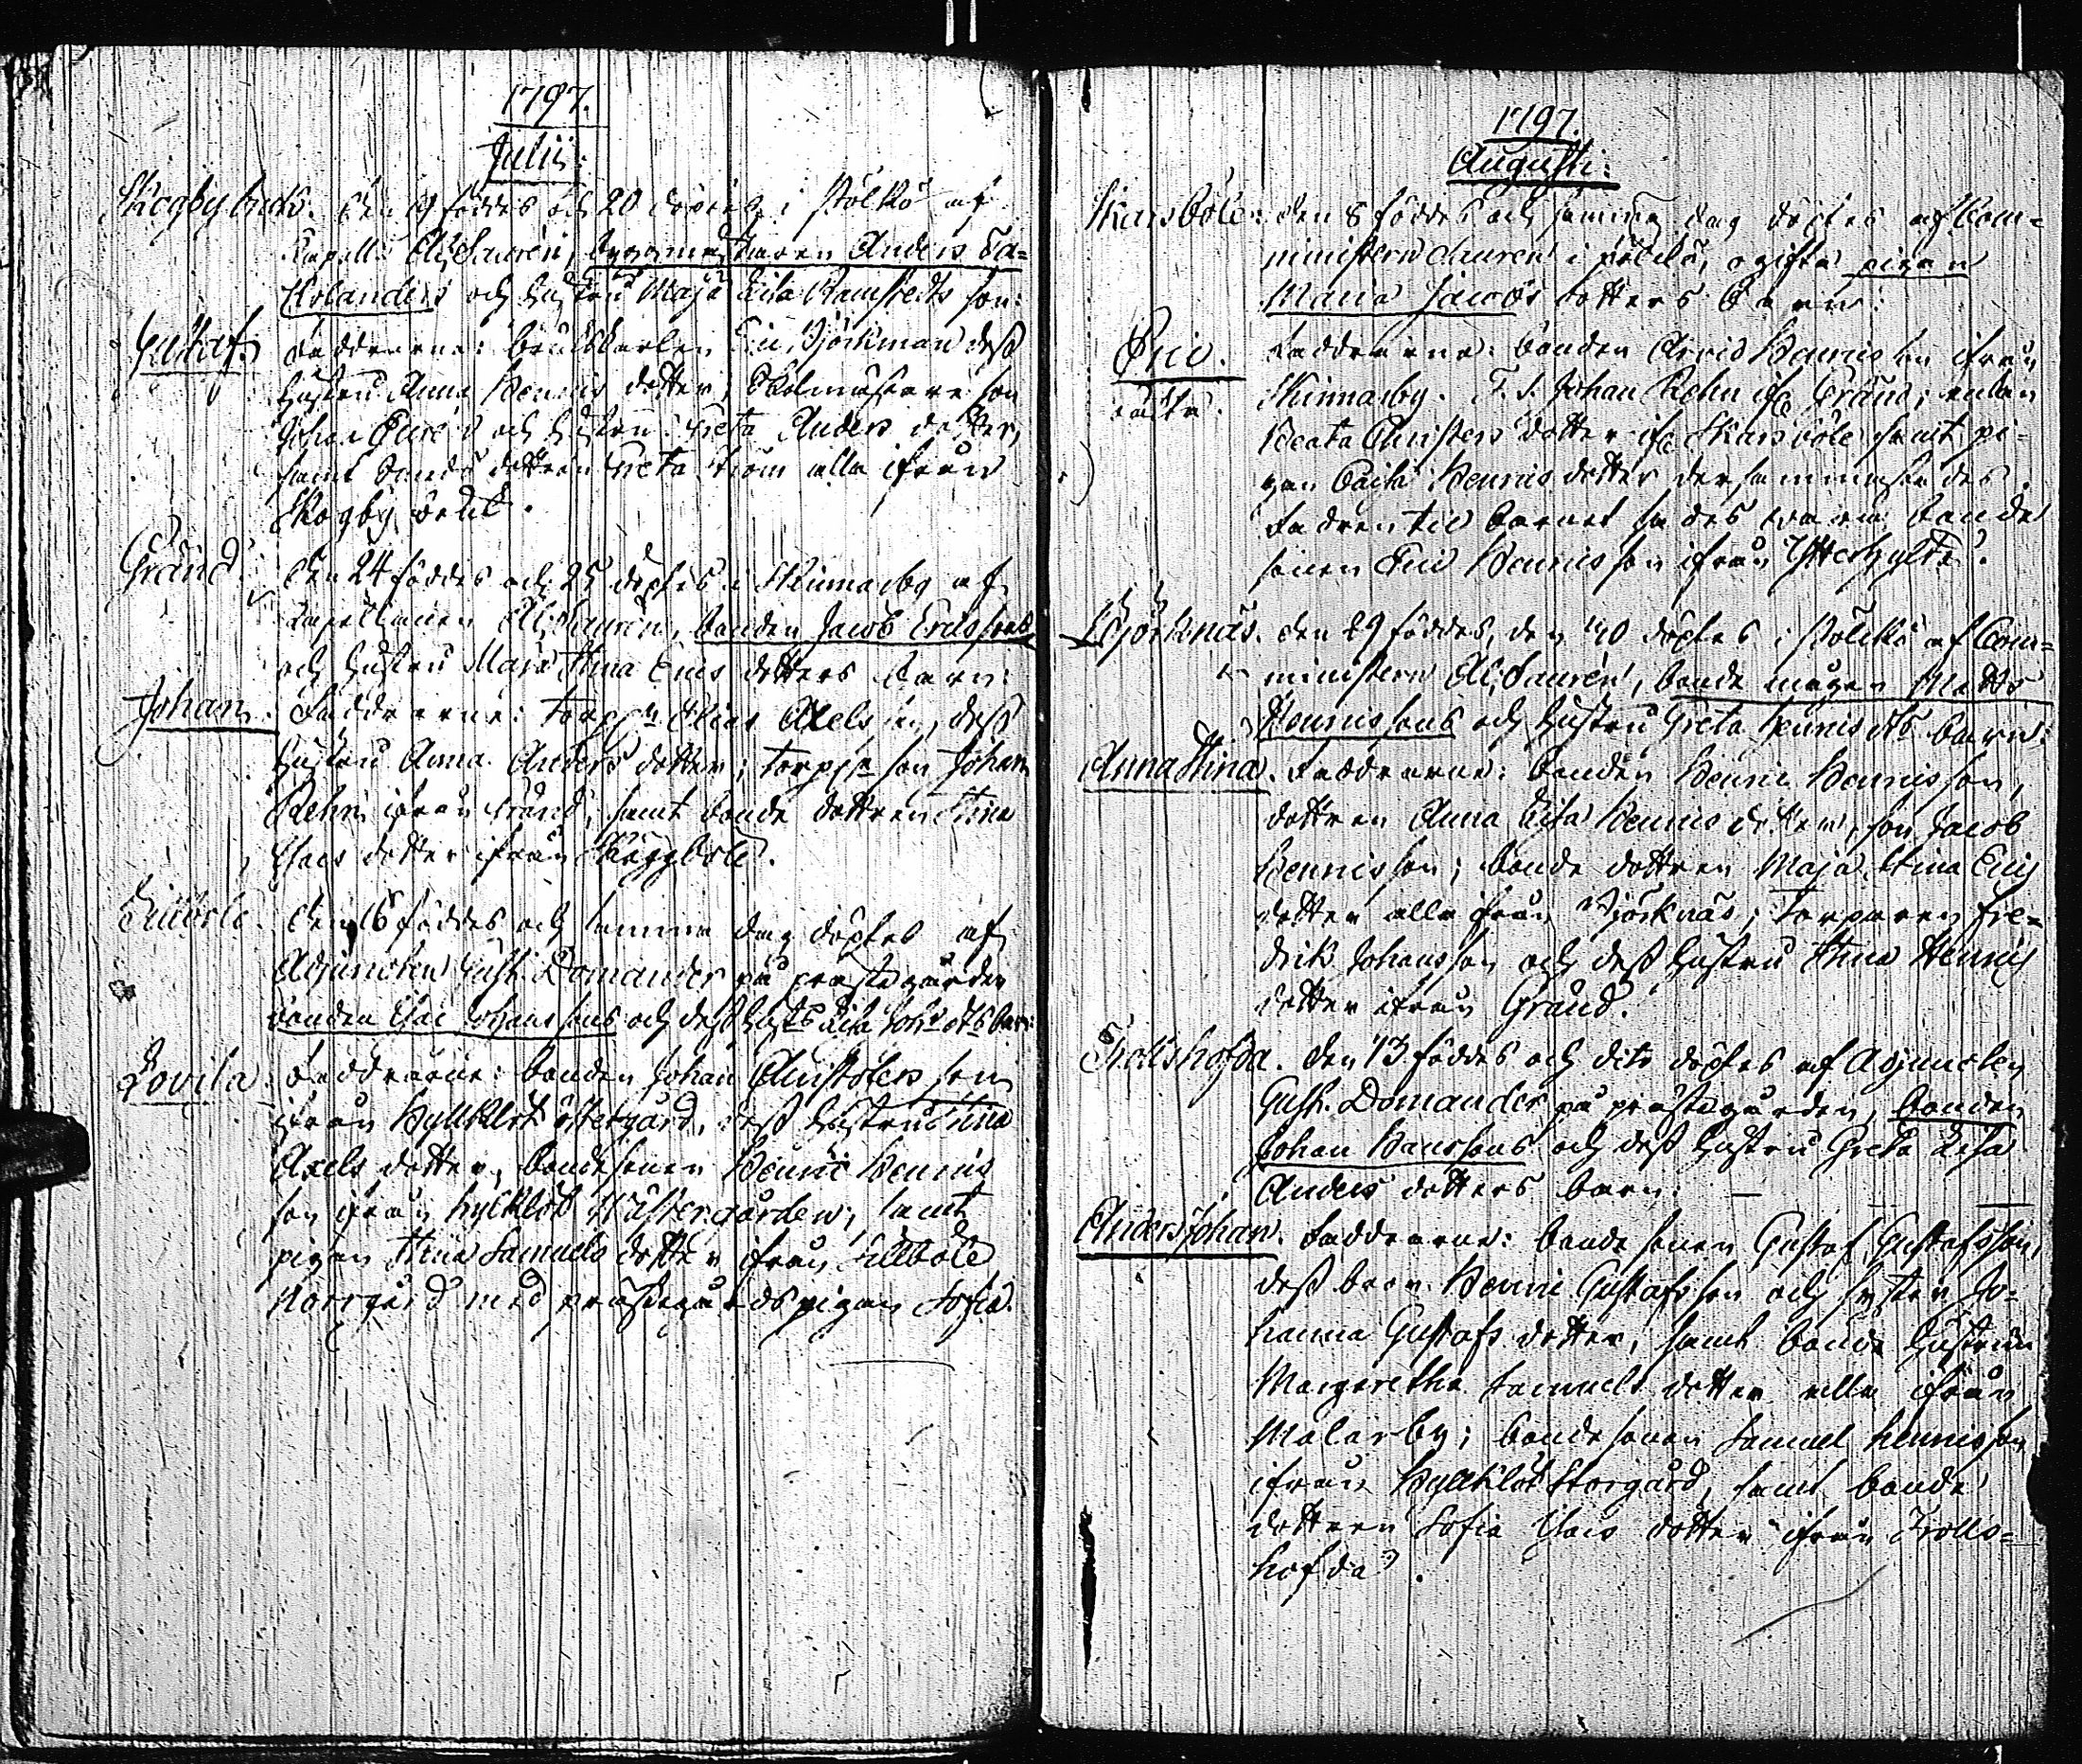 1797.
Julii:
Skogby bruk. den 19 föddes och 20 döptes i Pölkö af
Capell. Al: Laurén, byggmästaren Anders Ta=
kolanders och hustru Maja Lisa Ramstedts son:
Gustaf. Faddrarne: bruks karlen Eric Björkman dess
hustru Anna Henrics dotter, Skolmästare son
Johan och hustru Greta Anders dotter,
samt dottren Greta Ström alla ifrån
Skogby bruk.
Gränd. den 24 föddes och 25 döptes i Skinnarby af
Capellanen Al: Laurén, bonden Jacob Ericssons
och hustru Maja Stina Erics dotters barn:
Johan. Faddrarne: torp:n Elias Axelsson, dess
hustru Anna Anders dotter; torp:n son Johan
Rehn ifrån Gränd, samt bonde dottren Stina
Isacs dotter ifrån Skäggböle.
den 16 föddes och samma dag döptes af
Adjuncten Gust. Domander på prästegården
bonden Isac Johanssons och dess hust: Lisa Joh: dts barn:
Lovisa. Faddrarne: bonden Johan Christofers son
ifrån Hyllklöt östergård, dess hustru Stina
Axels dotter, bondesonen Henric Henrics
son ifrån Hyllklöt Wästergården; samt
pigan Stina Samuels dotter ifrån Lillböle
Norrgård med prästegårds pigan Sofia.
1797.
Augusti:
Skarsböle: den 8 föddes och samma dag döptes af Com=
ministern Laurén i Pölkö, ogifta pigan
Maria Jacobs dotters barn:
Eric. Faddrarne: bonden Arvid Henricsson ifrån
oäkta. Skinnarby. T. S. Johan Rehn if: Gränd; enkan
Beata Christers dotter if: Skarsböle samt pi=
gan Caisa Henrics dotter dersammastädes.
Fadren til barnet sades wara bonde
sonen Eric Henricsson ifrån Ytterhylta.
Björknäs. den 29 föddes, den 30 döptes i Pölkö af Com=
ministern Al: Laurén, bonde mågen Matts
Henricssons och hustru Greta Henrics dts barn:
Anna Stina. Faddrarne: bonden Henric Henricsson,
dottren Anna Lisa Henrics dotter, son Jacob
Henricsson; bonde dottren Maja Stina Erics
dotter alla ifrån Björknäs; Torparen Fre=
drik Johansson och dess hustru Stina Henrics
dotter ifrån Gränd.
Trollshofda. den 13 föddes och dito döptes af Adjuncten
Gust. Domander på prästegården, bonden
Johan Hanssons och dess hustru Greta Lisa
Anders dotters barn:
Anders Johan. Faddrarne: bonde sonen Gustaf Gustafsson,
dess bror Henric Gustafsson och syster Jo=
hanna Gustafs dotter, samt bonde hustrun
Margaretha Samuels dotter alla ifrån
Malarby; bonde sonen Samuel Henricsson
ifrån Hyllklöt Storgård, samt bonde
dottren Sofia Isacs dotter ifrån Trolls=
hofda.